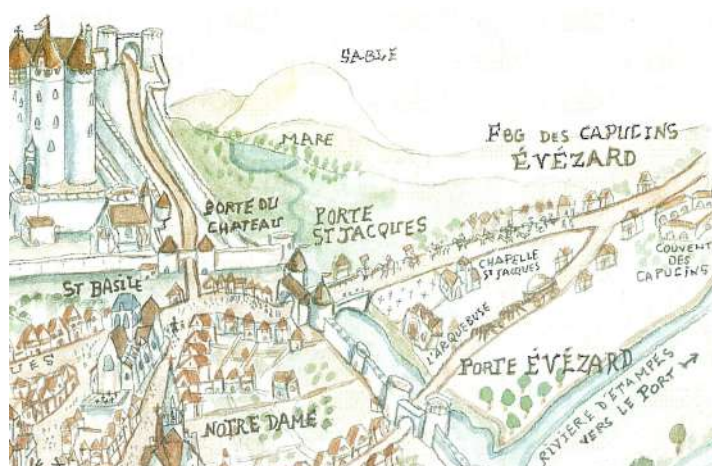 SABLE
MARE
FBG DES CAPUCINS
ÉVÉZARD
PORTE DU
CHATEAU
PORTE
ST JACQUES
CHAPELLE
ST JACQUES
COUVENT
DES
CAPUCINS
ST BASILE
L'ARQUEBUSE
UES
PORTE ÉVÉZARD
NOTRE DAME
RIVIERE D'ETAMPES
VERS LE PORT